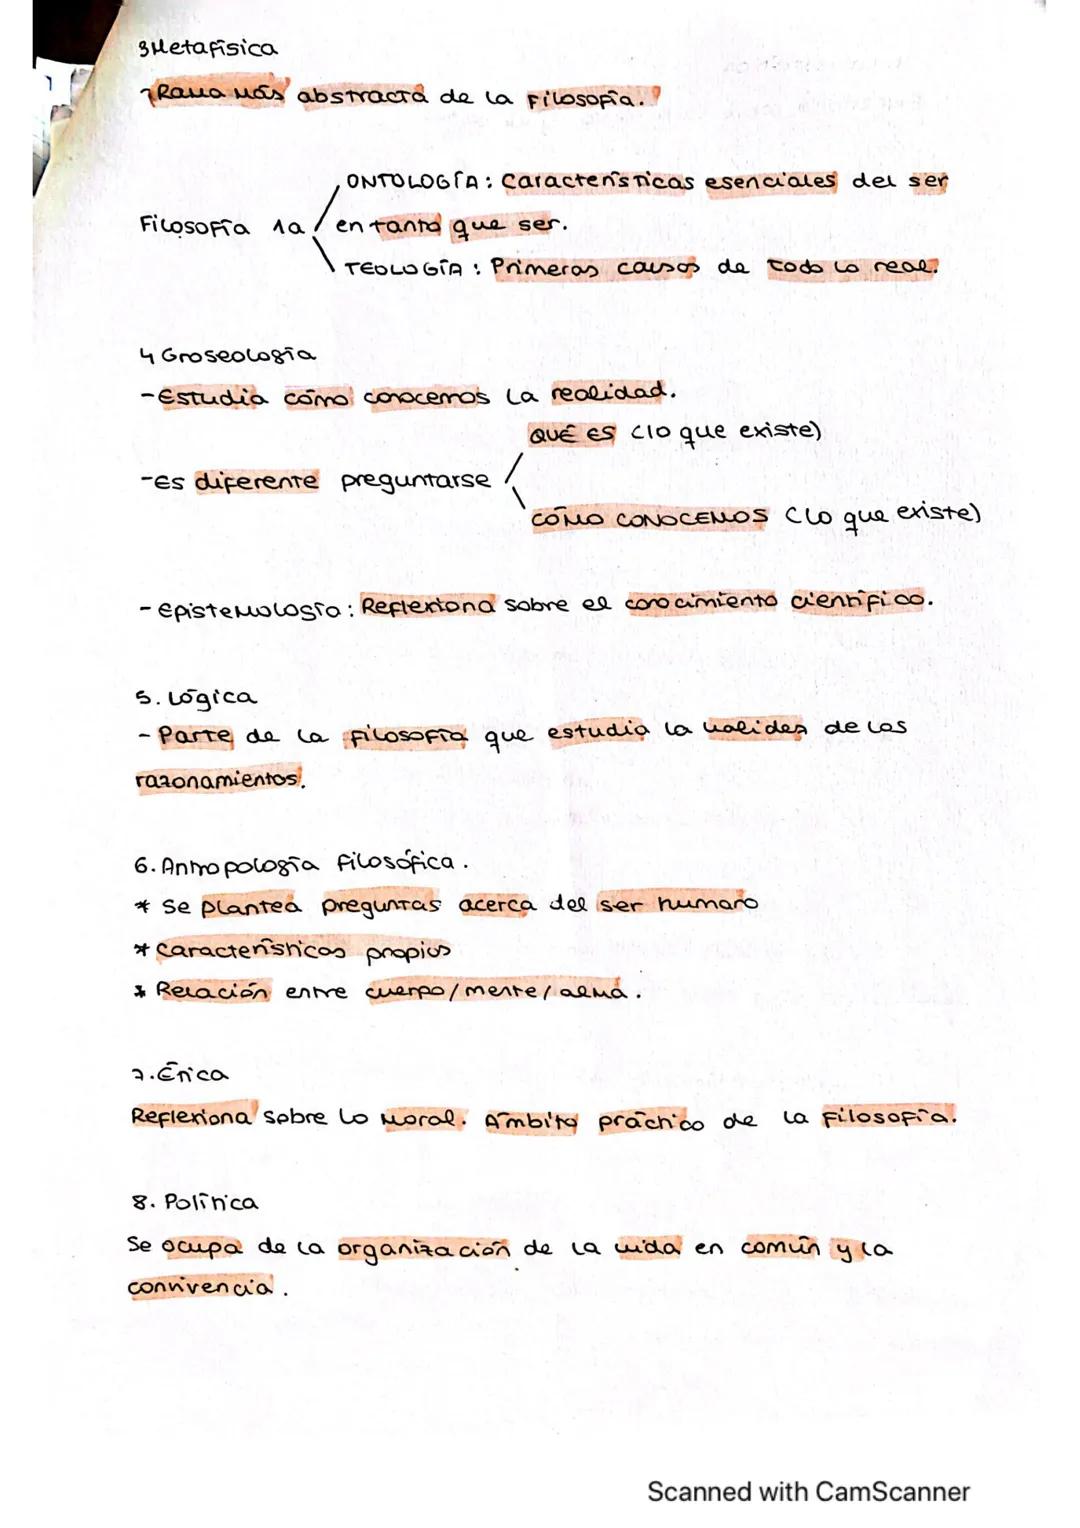 3 Metafísica
- Rama más abstracta de la Filosofía.
ONTOLOGÍA: Características esenciales del ser
Filosofía 1a en tanto que ser.
TEOLOGÍA: Primeras causas de todo lo real.
4 Groseología
- Estudia cómo conocemos la realidad.
QUÉ ES (lo que existe)
- Es diferente preguntarse
CÓMO CONOCEMOS (lo que existe)
- Epistemología: Reflexiona sobre el conocimiento científico.
5. Lógica
- Parte de la filosofía que estudia la validez de los
razonamientos.
6. Antropología Filosófica.
* Se plantea preguntas acerca del ser humano
* Características propias
* Relación entre cuerpo/mente/alma.
7. Ética
Reflexiona sobre lo moral. Ámbito práctico de la Filosofía.
8. Política
Se ocupa de la organización de la vida en común y la
convivencia.
Scanned with CamScanner